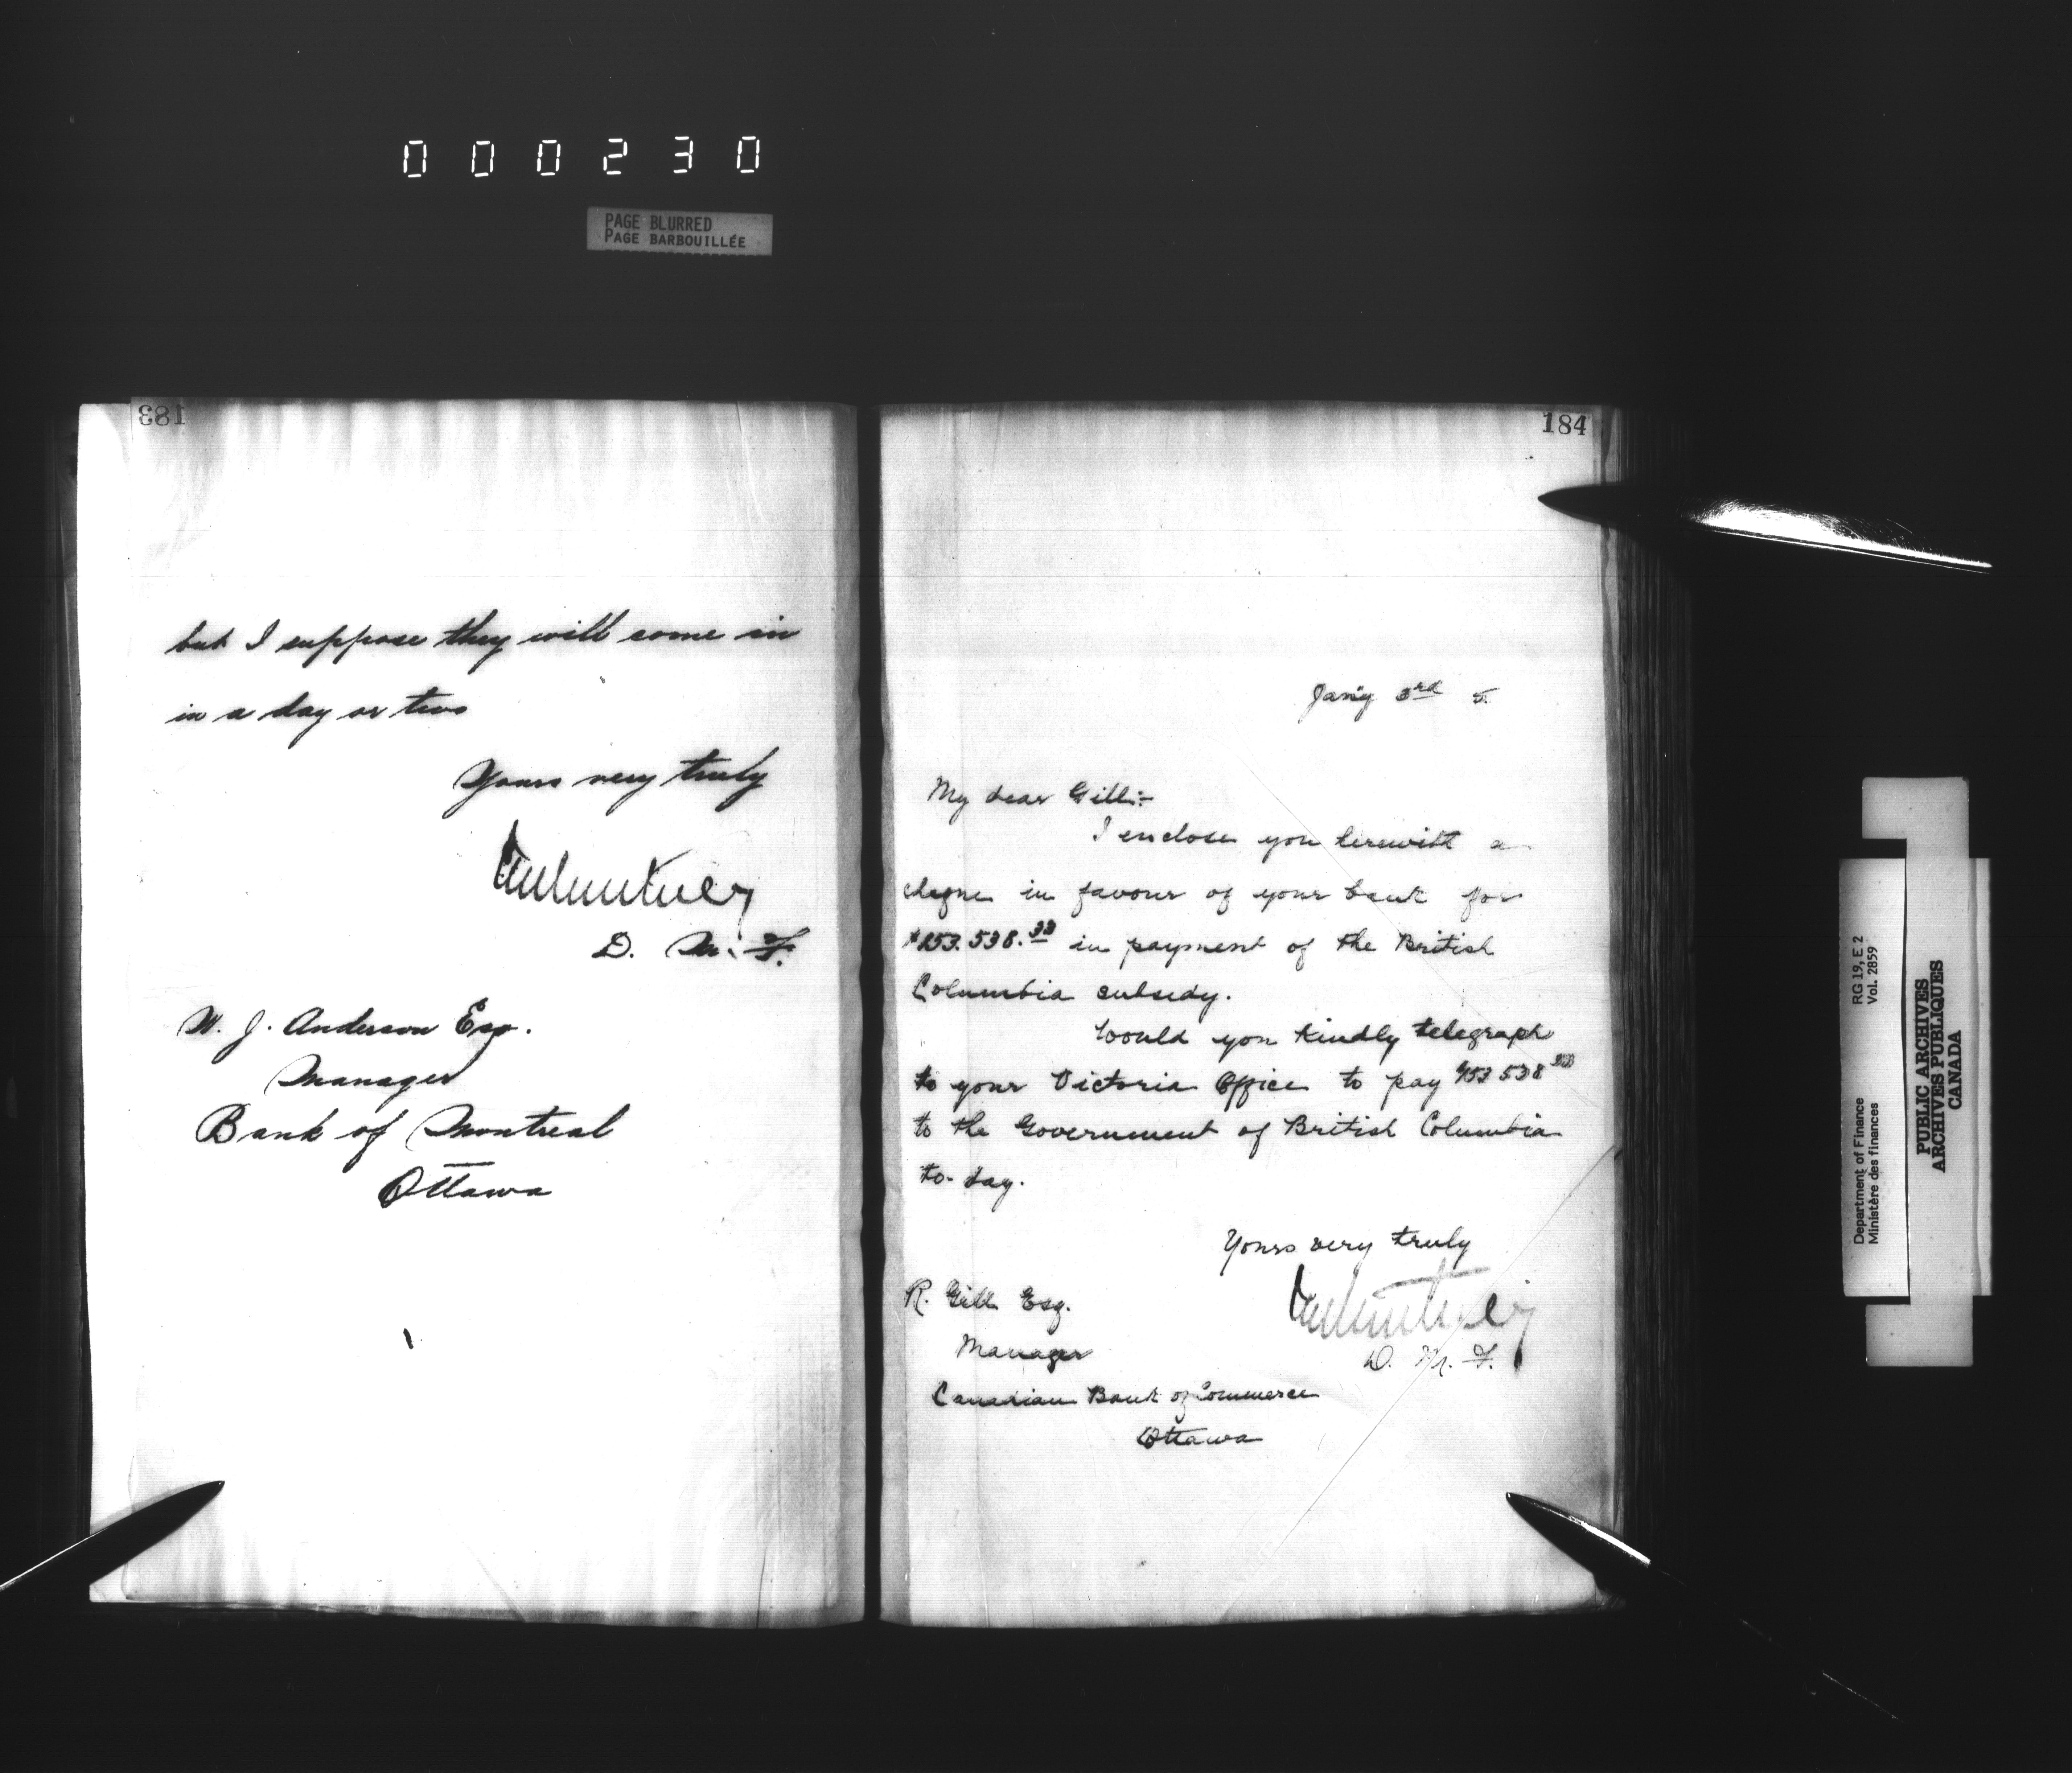 000230
PAGE BLURRED
PAGE BARBOUILLÉE
183
but I suppose they will come in
in a day or two
Yours very truly
D. M. F.
W. J. Anderson Esq.
Manager
Bank of Montreal
Ottawa
184
Jan'y 3rd 5.
My dear Gill:-
I enclose you herewith a
cheque in favour of your bank for
$153.538.33 in payment of the British
Columbia subsidy.
Would you kindly telegraph
to your Victoria Office to pay $153 538 33
to the Government of British Columbia
to-day.
Yours very truly
D. M. F.
R. Gill Esq.
Manager
Canadian Bank of Commerce
Ottawa
Department of Finance RG 19, E 2
Ministère des finances Vol. 2859
PUBLIC ARCHIVES
ARCHIVES PUBLIQUES
CANADA